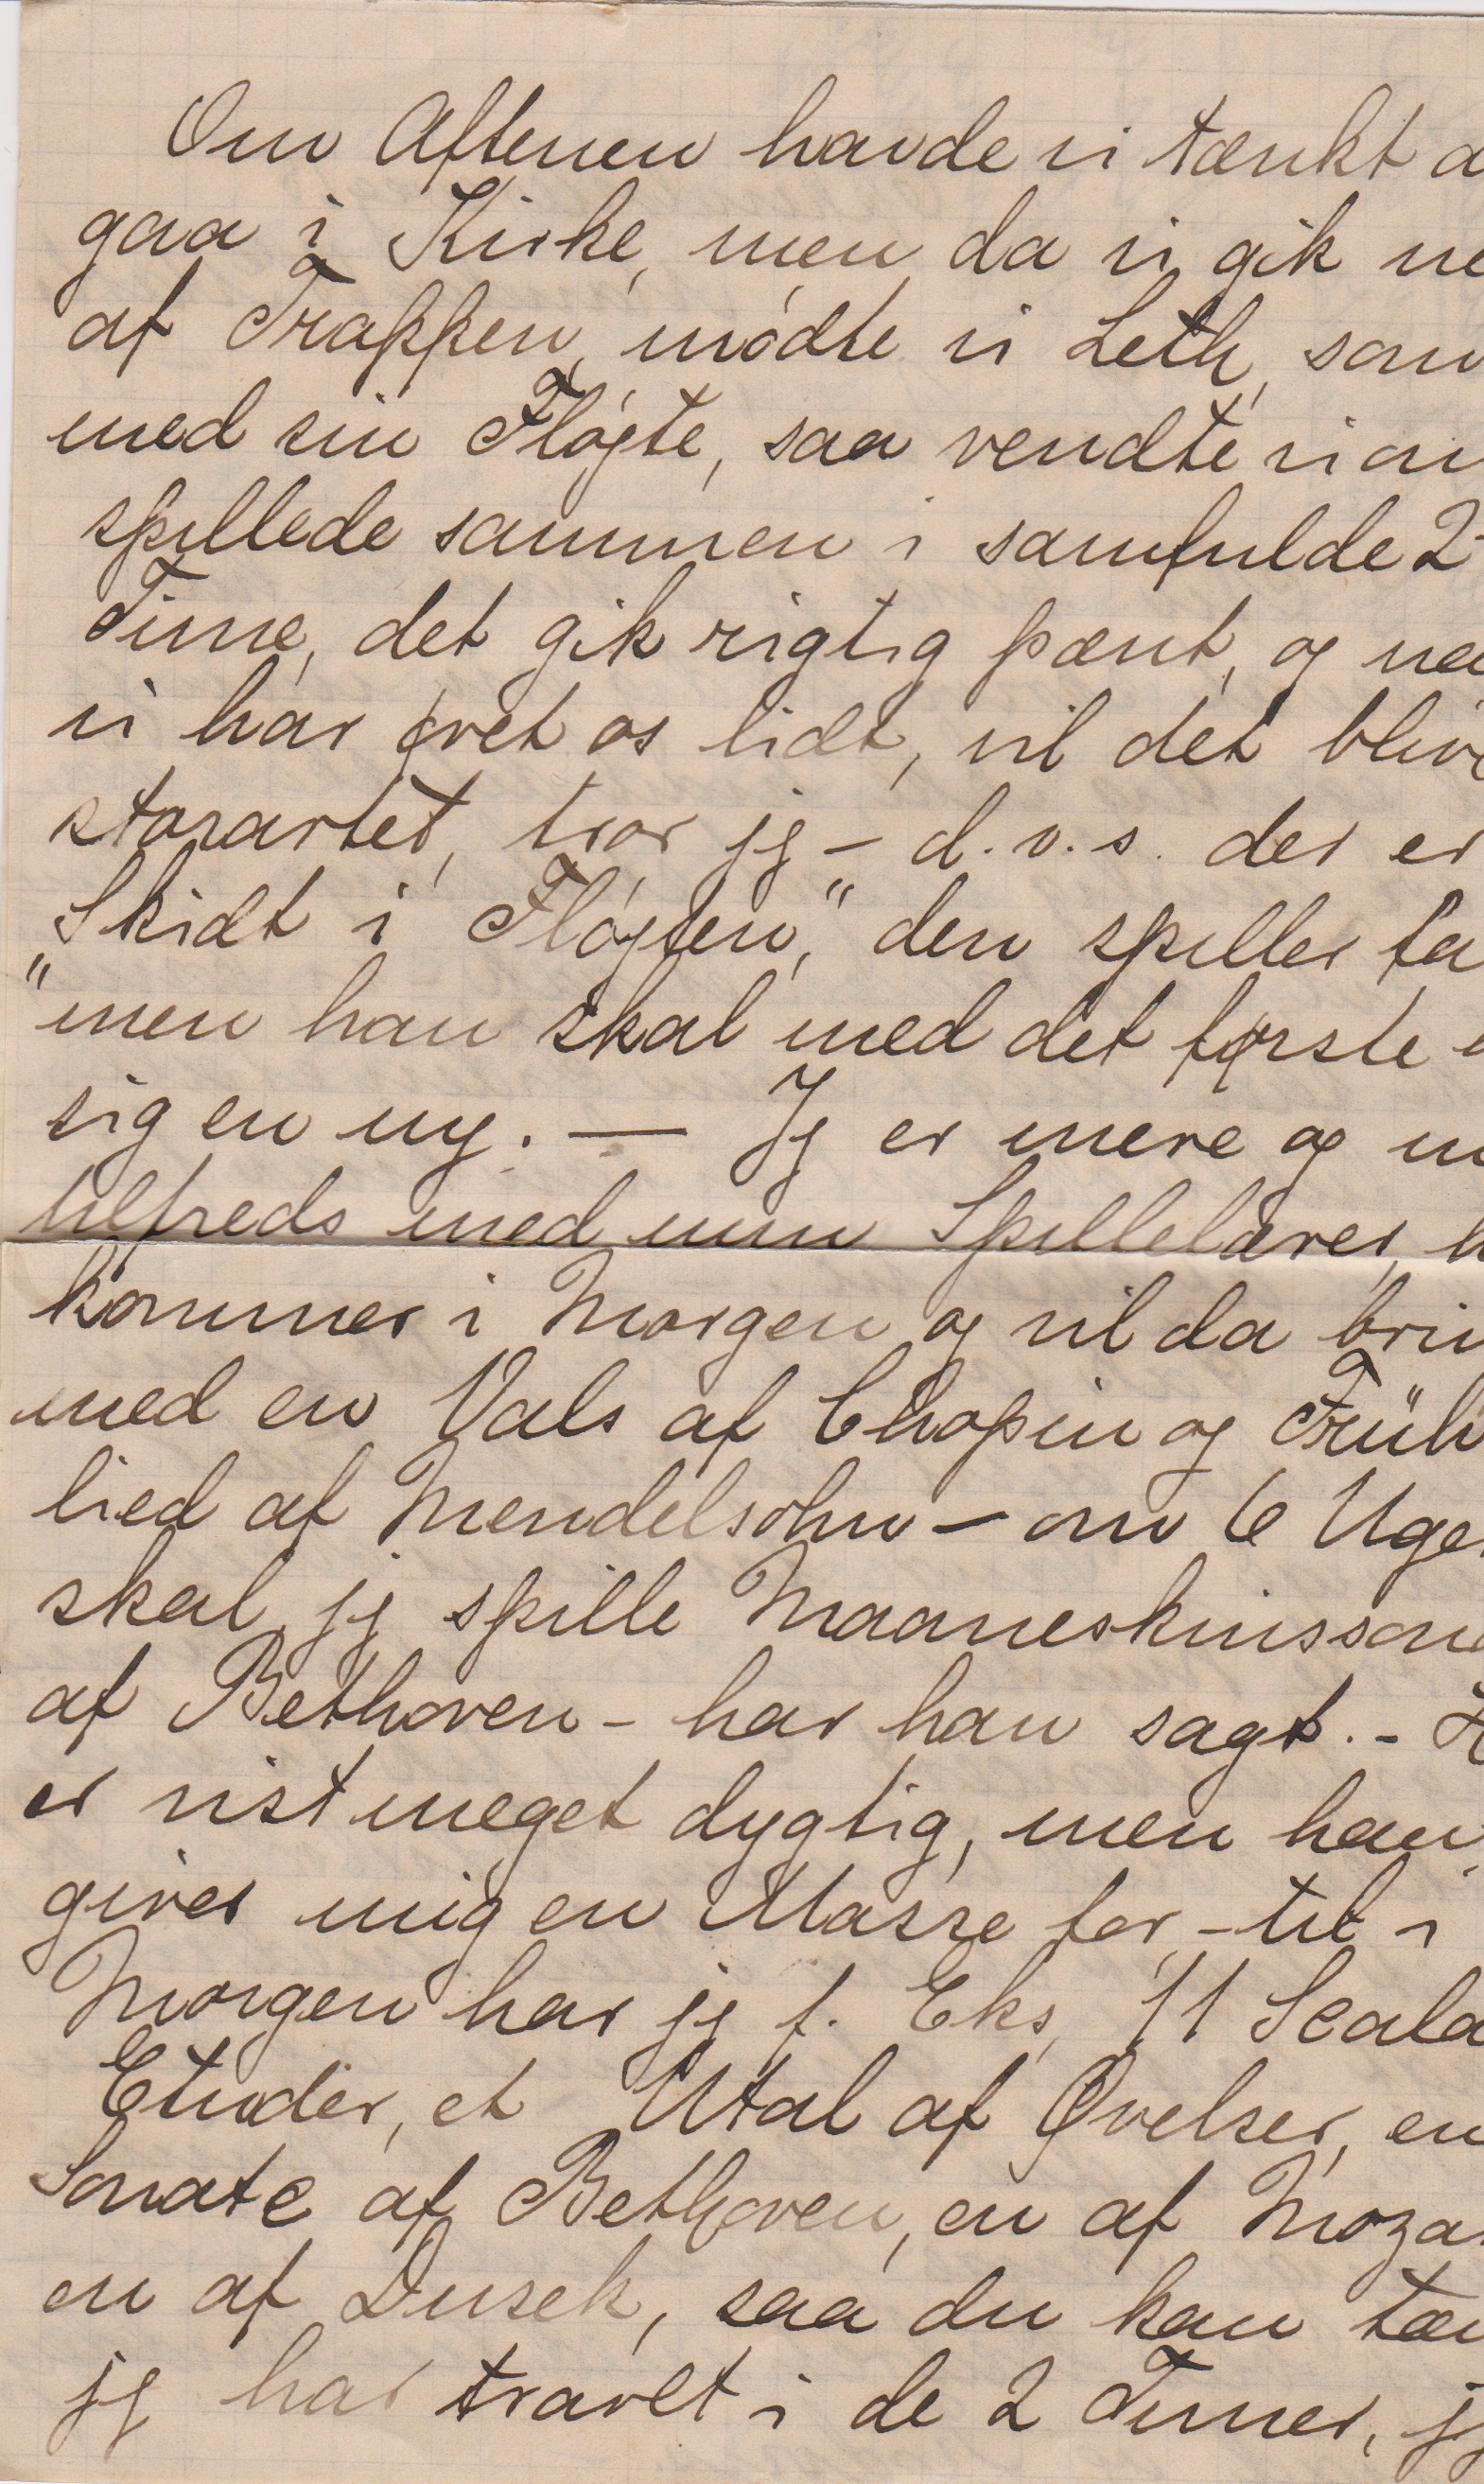 Om Aftenen havde vi tænkt a
gaa i Kirke, men da vi gik ne
af Trappen, mødte vi Leth, som
med sin Fløjte, saa vendte vi om
spillede sammen i samfulde 2
Time, det gik rigtig pænt, og naa
vi har øvet os lidt, vil det blive
storartet, tror jeg – d.v.s. der er
„Skidt i Fløjten," den spiller fa
men han skal med det første
sig en ny. — Jeg er mere og m
tilfreds med min Spillelærer,
kommer i Morgen og vil da brin
med en Vals af Chopin og Früh
lied af Mendelsohn – om 6 Uger
skal jeg spille Maaneskinssona
af Bethoven – har han sagt. – H
er vist meget dygtig, men han
giver mig en Masse for, – til i
Morgen har jeg f. Eks, 11 Scala
Etuder, et Utal af Øvelser, en
Sonate af Bethoven, en af Moza
en af Dusek, saa du kan tæn
jeg har travlt i de 2 Timer, j